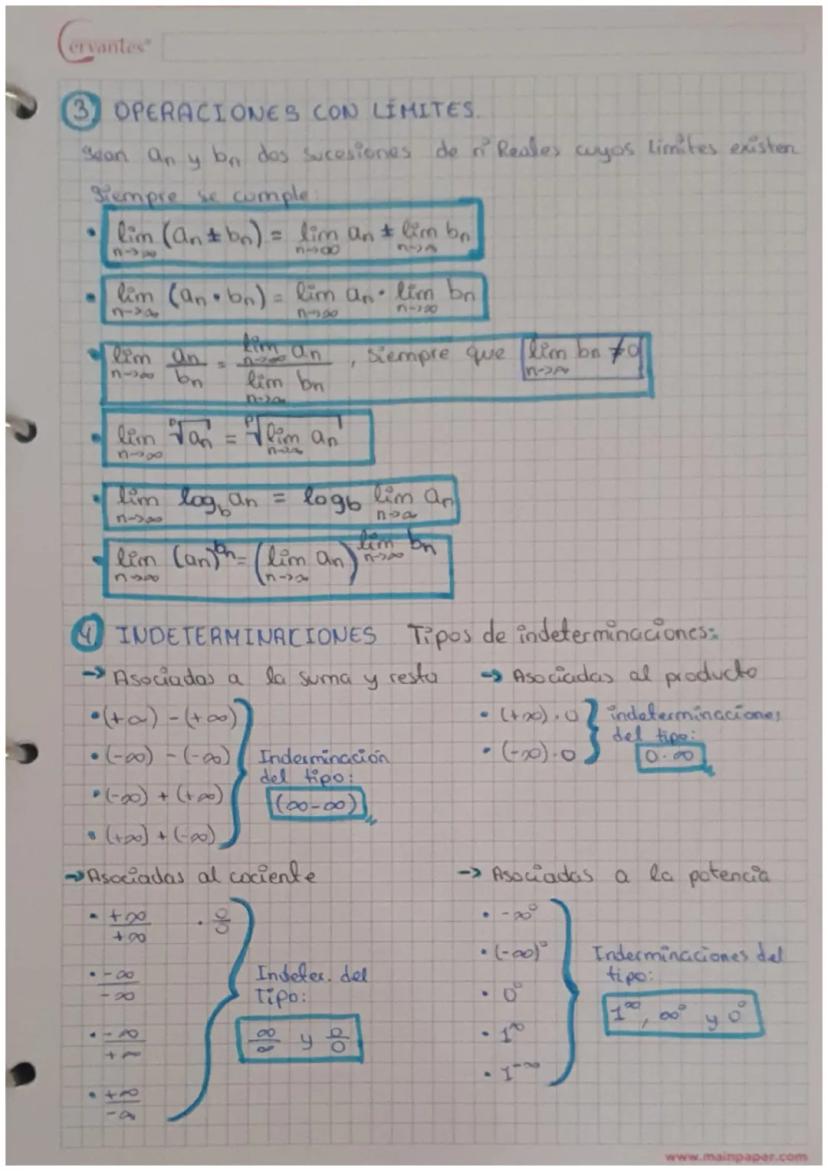 Cervantes®
3 OPERACIONES CON LÍMITES.
Sean an y bn dos sucesiones de nº Reales cuyos límites existen
Siempre se cumple:
• lim n->∞ (an ± bn) = lim n->∞ an ± lim n->∞ bn
• lim n->∞ (an · bn) = lim n->∞ an · lim n->∞ bn
• lim n->∞ an/bn = lim n->∞ an / lim n->∞ bn , siempre que lim n->∞ bn ≠ 0
• lim n->∞ ᵖ√an = ᵖ√lim n->∞ an
• lim n->∞ log_b an = log_b lim n->∞ an
• lim n->∞ (an)^bn = (lim n->∞ an)^lim n->∞ bn
4 INDETERMINACIONES Tipos de indeterminaciones:
-> Asociadas a la suma y resta
• (+∞) - (+∞)
• (-∞) - (-∞)
• (-∞) + (+∞)
• (+∞) + (-∞)
Inderminación
del tipo:
(∞-∞)
-> Asociadas al producto
• (+∞) · 0
• (-∞) · 0
indeterminaciones
del tipo:
0·∞
-> Asociadas al cociente
• +∞/+∞ · 0/0
• -∞/-∞
• -∞/+∞
• +∞/-∞
Indeter. del
Tipo:
∞/∞ y 0/0
-> Asociadas a la potencia
• -∞⁰
• (-∞)⁰
• 0⁰
• 1^∞
• 1^-∞
Inderminaciones del
tipo:
1^∞, ∞⁰ y 0⁰
www.mainpaper.com